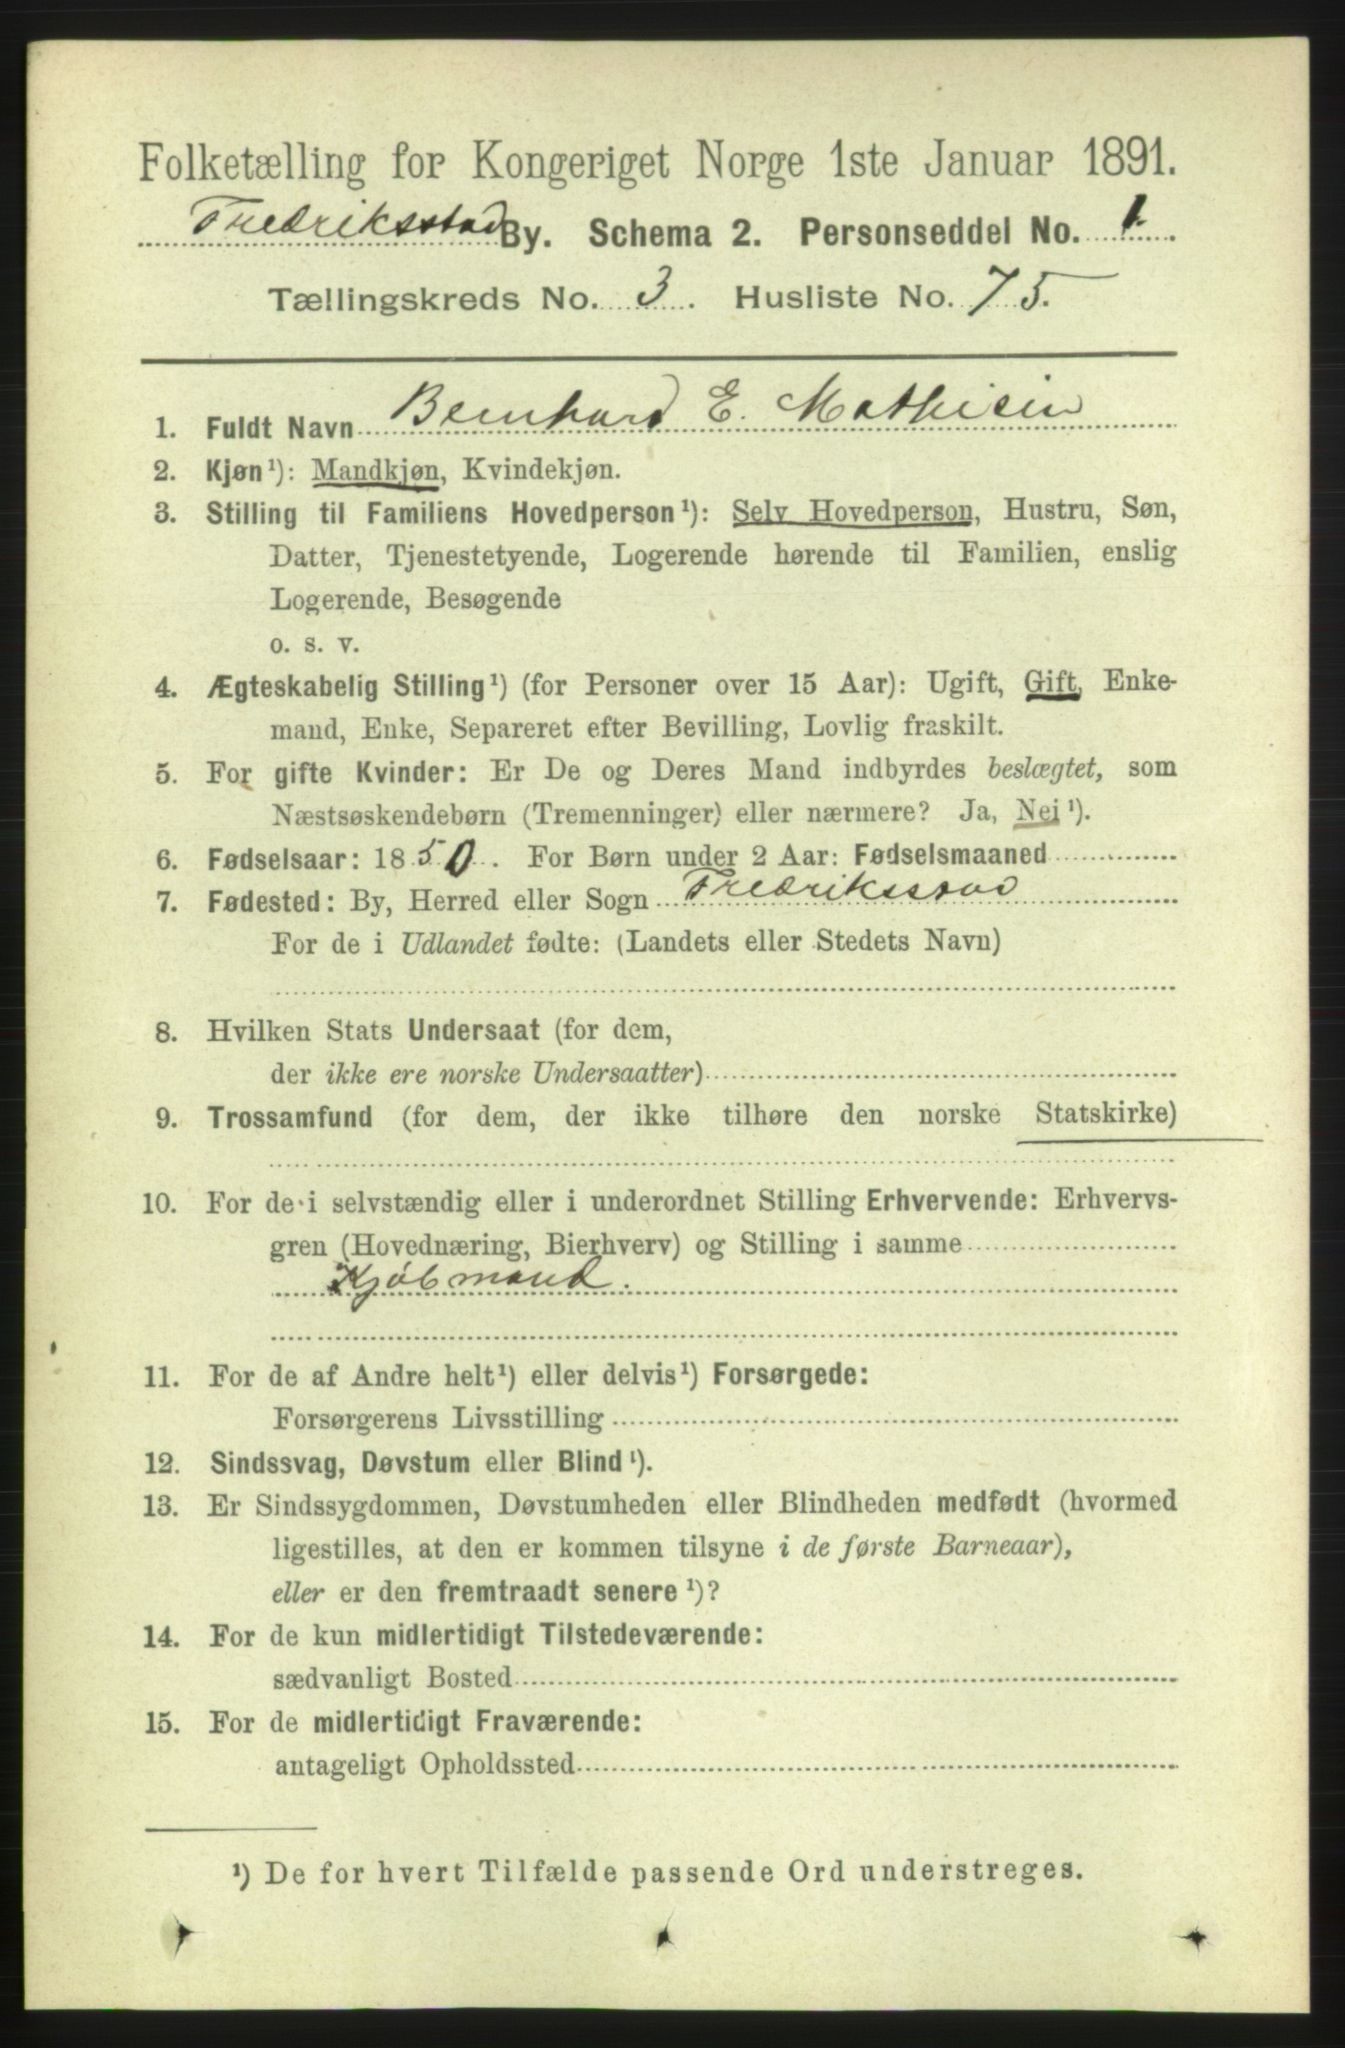 Folketælling for Kongeriget Norge 1ste Januar 1891.
Fredriksstad By. Schema 2. Personseddel No. 1
Tællingskreds No. 3. Husliste No. 75.
1. Fuldt Navn Bernhard E. Mathisen
2. Kjøn¹): Mandkjøn, Kvindekjøn.
3. Stilling til Familiens Hovedperson¹): Selv Hovedperson, Hustru, Søn,
Datter, Tjenestetyende, Logerende hørende til Familien, enslig
Logerende, Besøgende
o. s. v.
4. Ægteskabelig Stilling¹) (for Personer over 15 Aar): Ugift, Gift, Enke-
mand, Enke, Separeret efter Bevilling, Lovlig fraskilt.
5. For gifte Kvinder: Er De og Deres Mand indbyrdes beslægtet, som
Næstsøskendebørn (Tremenninger) eller nærmere? Ja, Nei¹).
6. Fødselsaar: 1850. For Børn under 2 Aar: Fødselsmaaned
7. Fødested: By, Herred eller Sogn Fredriksstad
For de i Udlandet fødte: (Landets eller Stedets Navn)
8. Hvilken Stats Undersaat (for dem,
der ikke ere norske Undersaatter)
9. Trossamfund (for dem, der ikke tilhøre den norske Statskirke)
10. For de i selvstændig eller i underordnet Stilling Erhvervende: Erhvervs-
gren (Hovednæring, Bierhverv) og Stilling i samme
Kjøbmand.
11. For de af Andre helt¹) eller delvis¹) Forsørgede:
Forsørgerens Livsstilling
12. Sindssvag, Døvstum eller Blind¹).
13. Er Sindssygdommen, Døvstumheden eller Blindheden medfødt (hvormed
ligestilles, at den er kommen tilsyne i de første Barneaar),
eller er den fremtraadt senere¹)?
14. For de kun midlertidigt Tilstedeværende:
sædvanligt Bosted
15. For de midlertidigt Fraværende:
antageligt Opholdssted
¹) De for hvert Tilfælde passende Ord understreges.